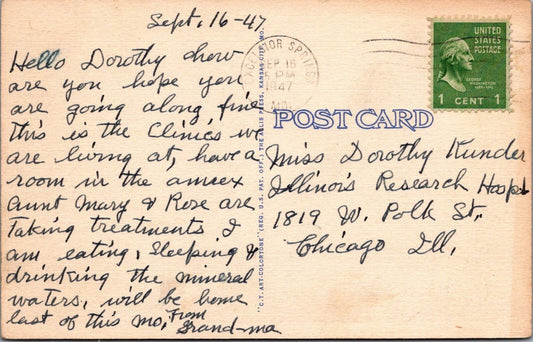 Sept. 16-47
Hello Dorothy how
are you hope you
are going along, fine
this is the Clinics we
are living at, have a
room in the annex
Aunt Mary & Rose are
Taking treatments I
am eating, Sleeping &
drinking the mineral
waters, will be home
last of this Mo, From
Grand-ma
"C.T. ART-COLORTONE" (REG. U.S. PAT. OFF.)
EXCELSIOR SPRINGS
SEP 16
5 PM
1947
MO.
UNITED
STATES
POSTAGE
GEORGE
WASHINGTON
1 CENT 1
POST CARD
Miss Dorothy Kunder
Illinois Research Hosp
1819 W. Polk St.,
Chicago Ill,